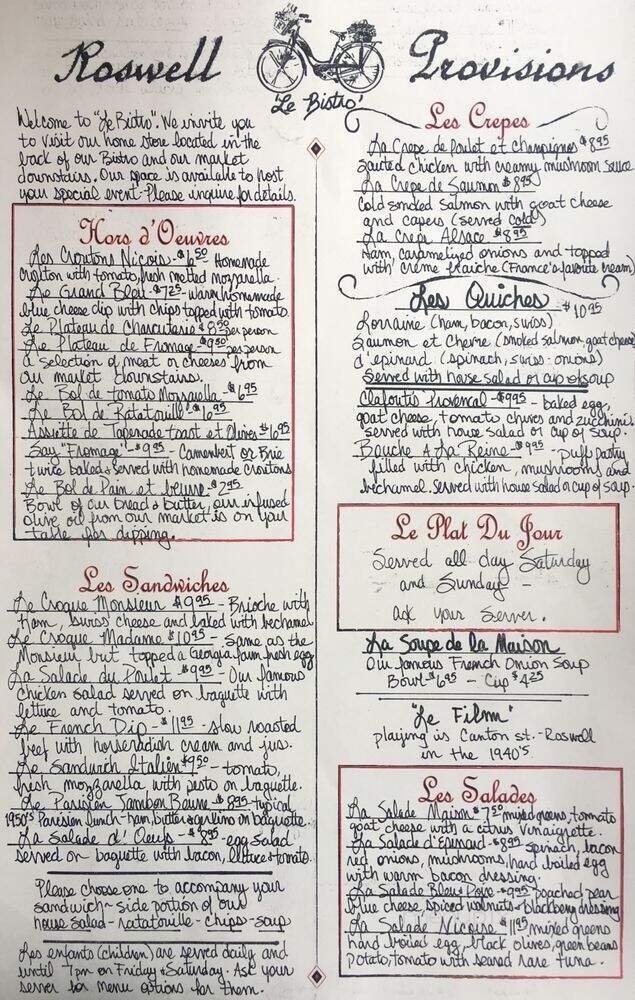 Roswell Provisions
Le Bistro'
Welcome to "Le Bistro". We invite you
to visit our home store located in the
back of our Bistro and our market
downstairs. Our space is available to host
your special event - Please inquire for details.
Hors d'Oeuvres
Les Croutons Nicois - $6.50 - Homemade
crouton with tomato, fresh melted mozzarella.
Le Grand Bleu - $7.25 - warm homemade
blue cheese dip with chips topped with tomato.
Le Plateau de Charcuterie $8.50 per person
Le Plateau de Fromage - $9.50 - per person
a selection of meat or cheeses from
our market downstairs.
Le Bol de tomato Mozzarella - $6.95
Le Bol de Ratatouille - $6.95
Assiette de Tapenade toast et Olives - $6.95
Say "Fromage" - $9.95 - Camembert or Brie
twice baked & served with homemade croutons
Le Bol de Pain et beurre - $2.95
Bowl of our bread & butter, our infused
olive oil from our market is on your
table for dipping.
Les Sandwiches
Le Croque Monsieur $9.95 - Brioche with
Ham, swiss cheese and baked with bechamel
Le Croque Madame $10.95 - Same as the
Monsieur but topped a Georgia farm fresh egg
La Salade du Poulet - $9.95 - Our famous
Chicken salad served on baguette with
lettuce and tomato.
Le French Dip - $11.95 - slow roasted
beef with horseradish cream and jus.
Le Sandwich Italien $9.50 - tomato,
fresh mozzarella with pesto on baguette.
Le Parisien Jambon Beurre - $8.95 - typical
1950's Parisien lunch - ham, butter & gerkins on baguette.
La Salade d' Oeufs - $8.95 - egg salad
served on baguette with bacon, lettuce & tomato.
Please choose one to accompany your
sandwich ~ side portion of our
house salad - ratatouille - chips - soup
Les enfants (children) are served daily and
until 7pm on Friday & Saturday. Ask your
server for menu options for them.
Les Crepes
La Crepe de Poulet et champignons $8.95
sauted chicken with creamy mushroom sauce
La Crepe de Saumon $8.95
Cold smoked salmon with goat cheese
and capers (served cold)
La Crepe Alsace $8.95
Ham, caramelized onions and topped
with creme fraiche (France's favorite cream)
Les Quiches $10.95
Lorraine (ham, bacon, swiss)
Saumon et Chevre (smoked salmon, goat cheese)
d'epinard (spinach, swiss - onions)
Served with house salad or cup of soup
Clafoutis Provencal - $9.95 - baked egg,
goat cheese, tomato, chives and zucchini
served with house salad or cup of soup.
Bouche A La Reine - $9.95 - puff pastry
filled with chicken, mushrooms and
bechamel. served with house salad or cup of soup.
Le Plat Du Jour
Served all day Saturday
and Sunday -
ask your server.
La Soupe de la Maison
Our famous French Onion Soup
Bowl - $6.95 - Cup $4.25
"Le Film"
playing is Canton st. - Roswell
in the 1940's.
Les Salades
La Salade Maison $7.50 mixed greens, tomato
goat cheese with a citrus vinaigrette.
La Salade d'Epinard - $8.95 spinach, bacon
red onions, mushrooms, hard boiled egg
with warm bacon dressing.
La Salade Bleu & Poire - $9.95 poached pear
blue cheese, spiced walnuts - blackberry dressing
La Salade Nicoise $11.95 mixed greens
hard boiled egg, black olives, green beans
potato, tomato with seared rare tuna.